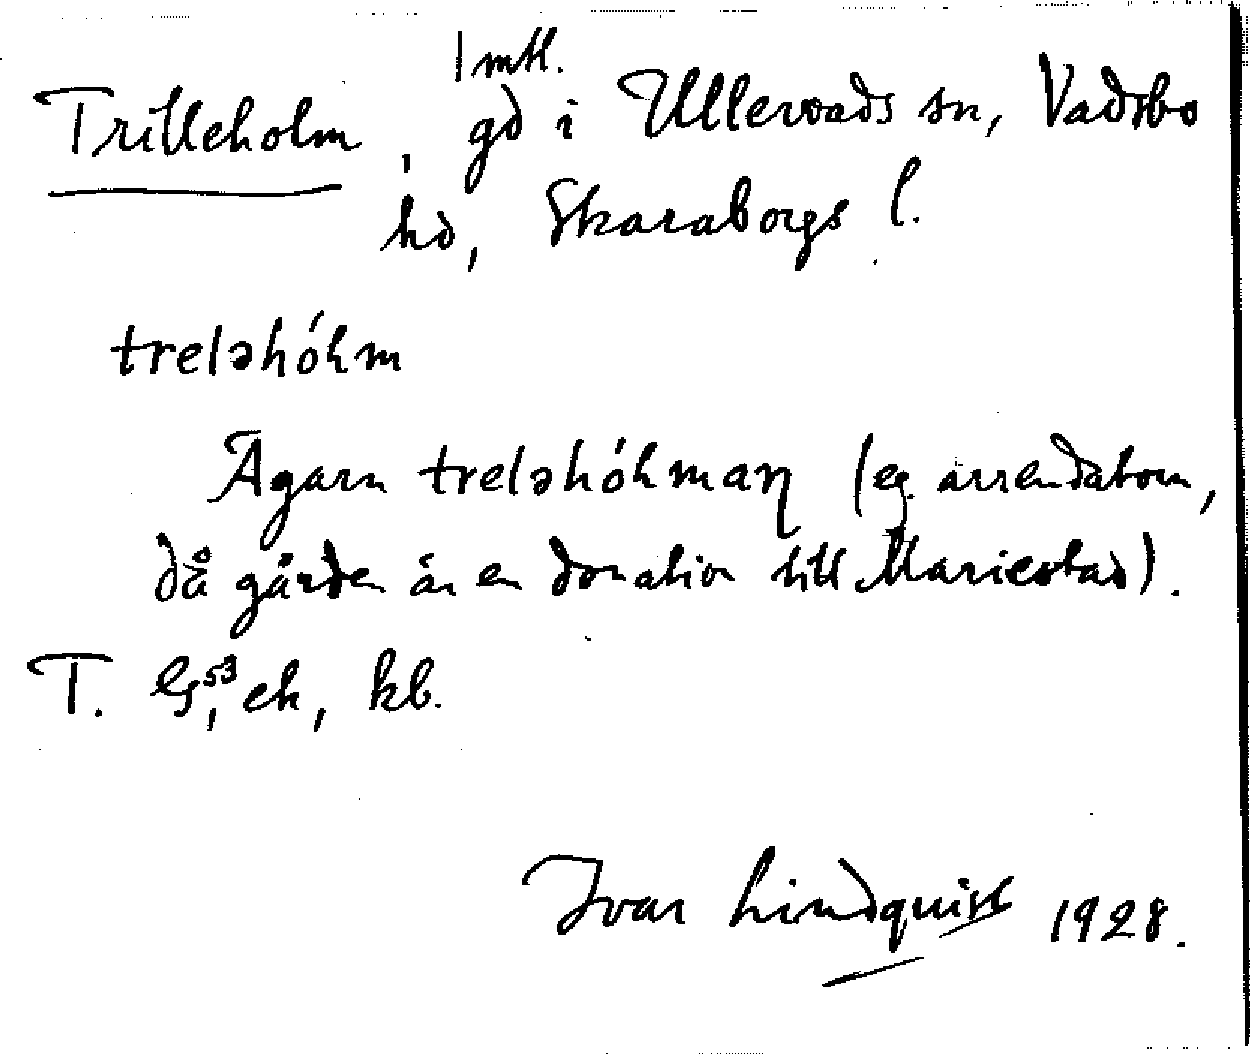 1 mtl.
Trilleholm, gd i Ullervads sn, Vadsbo
hd, Skaraborgs l.
treləhólm
Ägarn treləhólmaɳ (eg. arrendatorn,
då gården är en donation till Mariestad).
T. G53, ek, kb.
Ivar Lindquist 1928.